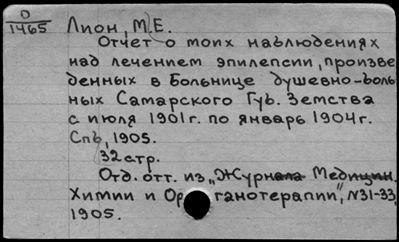 О
1465
Лион, М.Е.
Отчет о моих наблюдениях
над лечением эпилепсии, произве
денных в Больнице душевно-боль
ных Самарского Губ. Земства
с июля 1901г. по январь 1904г.
Спб, 1905.
32 стр.
Отд. отт. из „Журнала Медицин.
Химии и Органотерапии", N31-33,
1905.